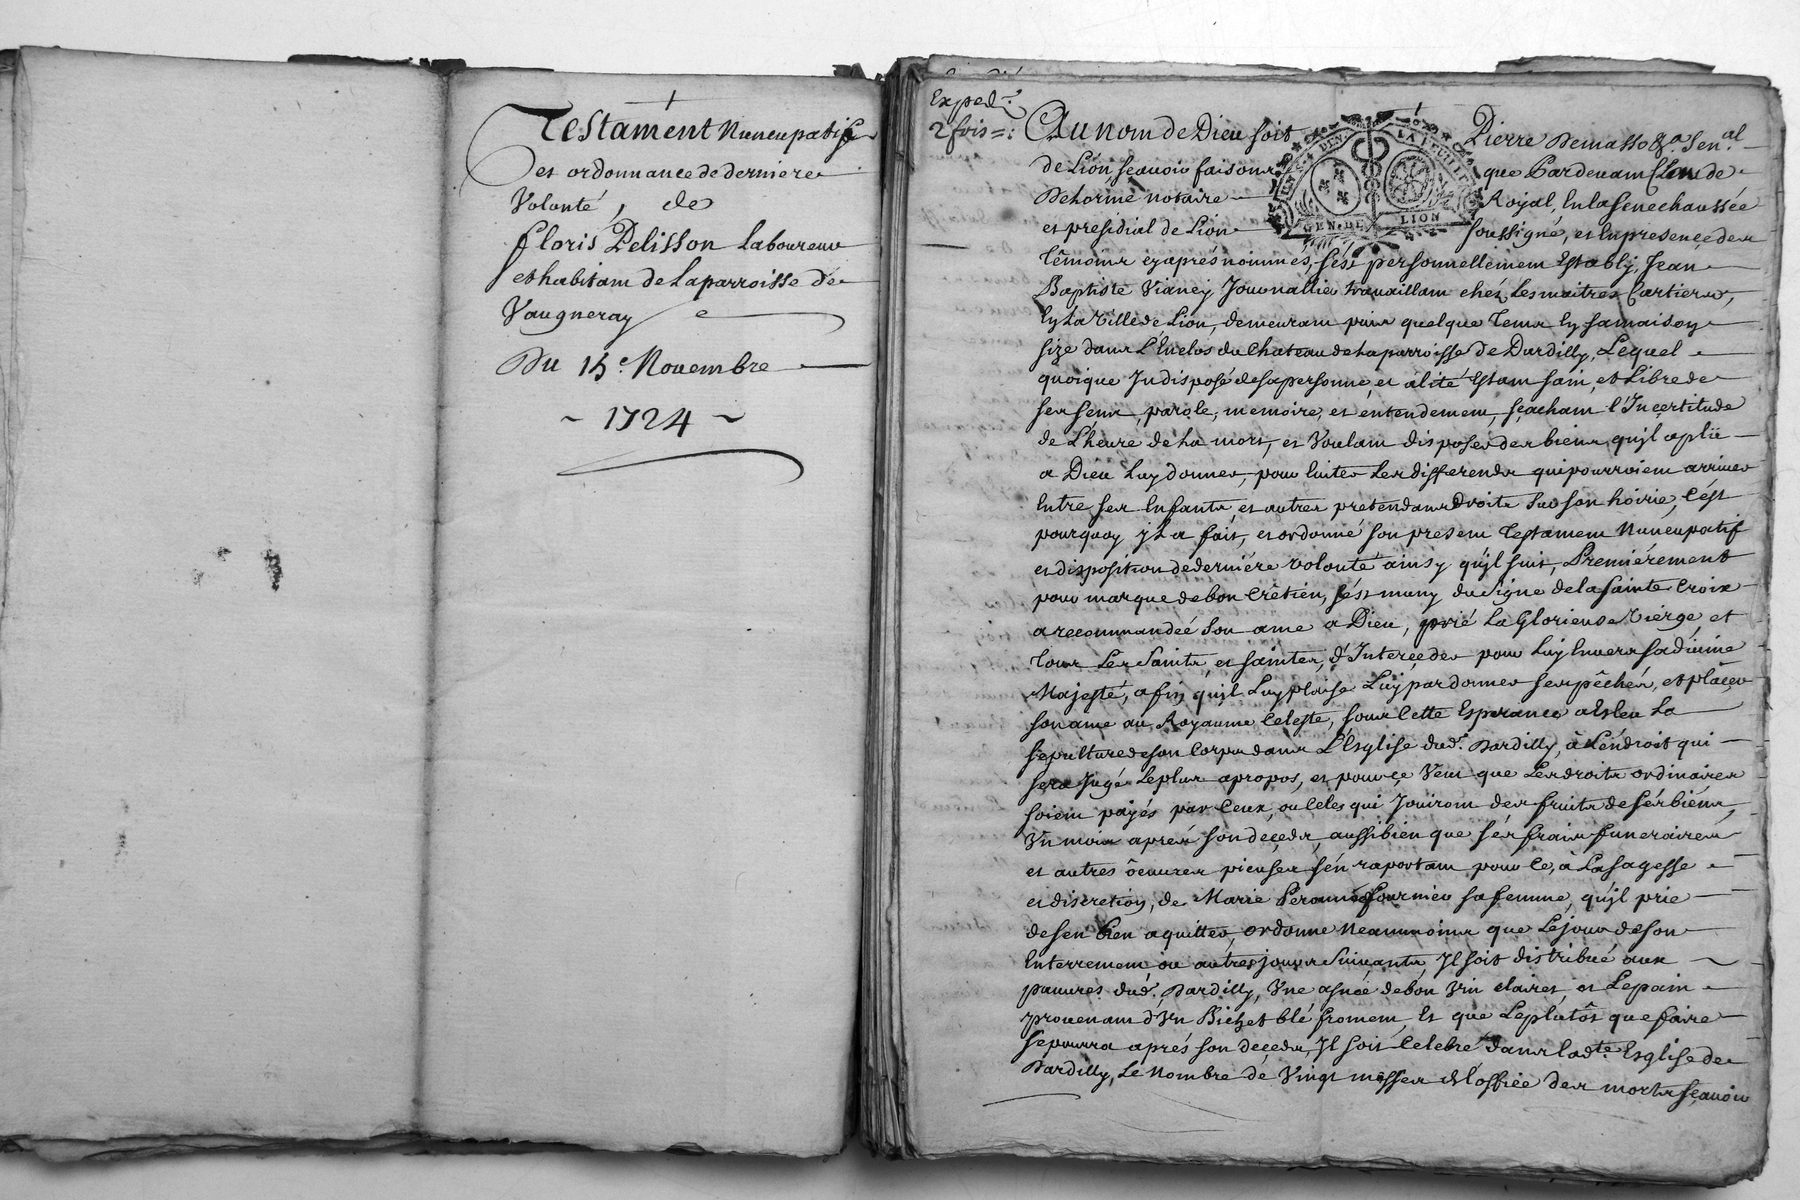 Testament Nuncupatif
et ordonnance de derniere
Volonté, de
floris Delisson Laboureur
et habitant de Laparroisse de
Vaugneray
Du 15e. Novembre
~ 1724 ~
Exped.
2 fois =:
Au nom de Dieu soit Pierre Demasso &a. Sen.al
de Lion sçavoir faisons que Pardevant Claude
Dehorme notaire Royal, En la senechaussée
et presidial de Lion soussigné, et En presence des
Têmoins cy aprés nommés, s'ést personnellement Estably, Jean
Baptiste Vianey Journallier travaillant chéz Les maitres Cartiers,
En La Ville de Lion, demeurant puis quelque Tems En sa maison
size dans L'Enclos du Chateau de La parroisse de Dardilly, Lequel
quoique Indisposé de sa personne, et alité Estant sain, et Libre de
ses sens, parole, memoire, et entendement, sçachant l'Inçertitude
de L'heure de La mort, et Voulant disposer des biens, qu'jl a plû
a Dieu Luy donner, pour Eviter Les differends qui pourroient arriver
Entre ses Enfants, et autres pretendans droits sur son hoirie, C'ést
pourquoy jL a fait, et ordonné son present Testament Nuncupatif
et disposition de derniére volonté ainsy qu'jl suit, Premiérement
pour marque de bon Crêtien, s'ést muny du signe de la sainte Croix
a recommandéé son ame a Dieu, prié La Glorieuse Viérge, et
Tous Les saints et saintes, d'Interçeder pour Luy Envers sa divine
Majesté, afin qu'jl Luy plaise Luy pardonner ses pêchés, et plaçer
son ame au Royaume Celeste, sous Cette Esperance a Esleu La
sepulture de son Corps dans L'Esglise dud. Dardilly, à L'éndroit qui
sera Jugé Le plus apropos, et pour çe Veut que Les droits ordinaires
soient payés par Ceux, ou Celes qui Jouiront des fruits de sés biéns,
Un mois aprés son deçeds, aussi bien que sés frais funeraires
et autres oeuvres pieuses s'én raportant pour Ce, à La sagesse
et discretion, de Marie Peronne fournier sa femme, qu'jl prie
de s'en bien aquitter, ordonne Neanmoins que Le jour de son
Enterrement ou autres jours suivants, Jl soit distribué aux
pauvres dud. Dardilly, Une asnéé de bon Vin clairet, et Le pain
provenant d'Un Bichet blé froment, Et que Le plutôt que faire
se pourra aprés son deçeds, Jl soit Celebré dans lad.te Esglise de
Dardilly, Le Nombre de Vingt messes et L'offiçe des morts sçavoir